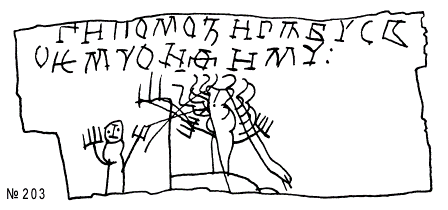 ГИПОМОЗИРАБУСВ
ОѤМУОНѲИМУ:
№ 203